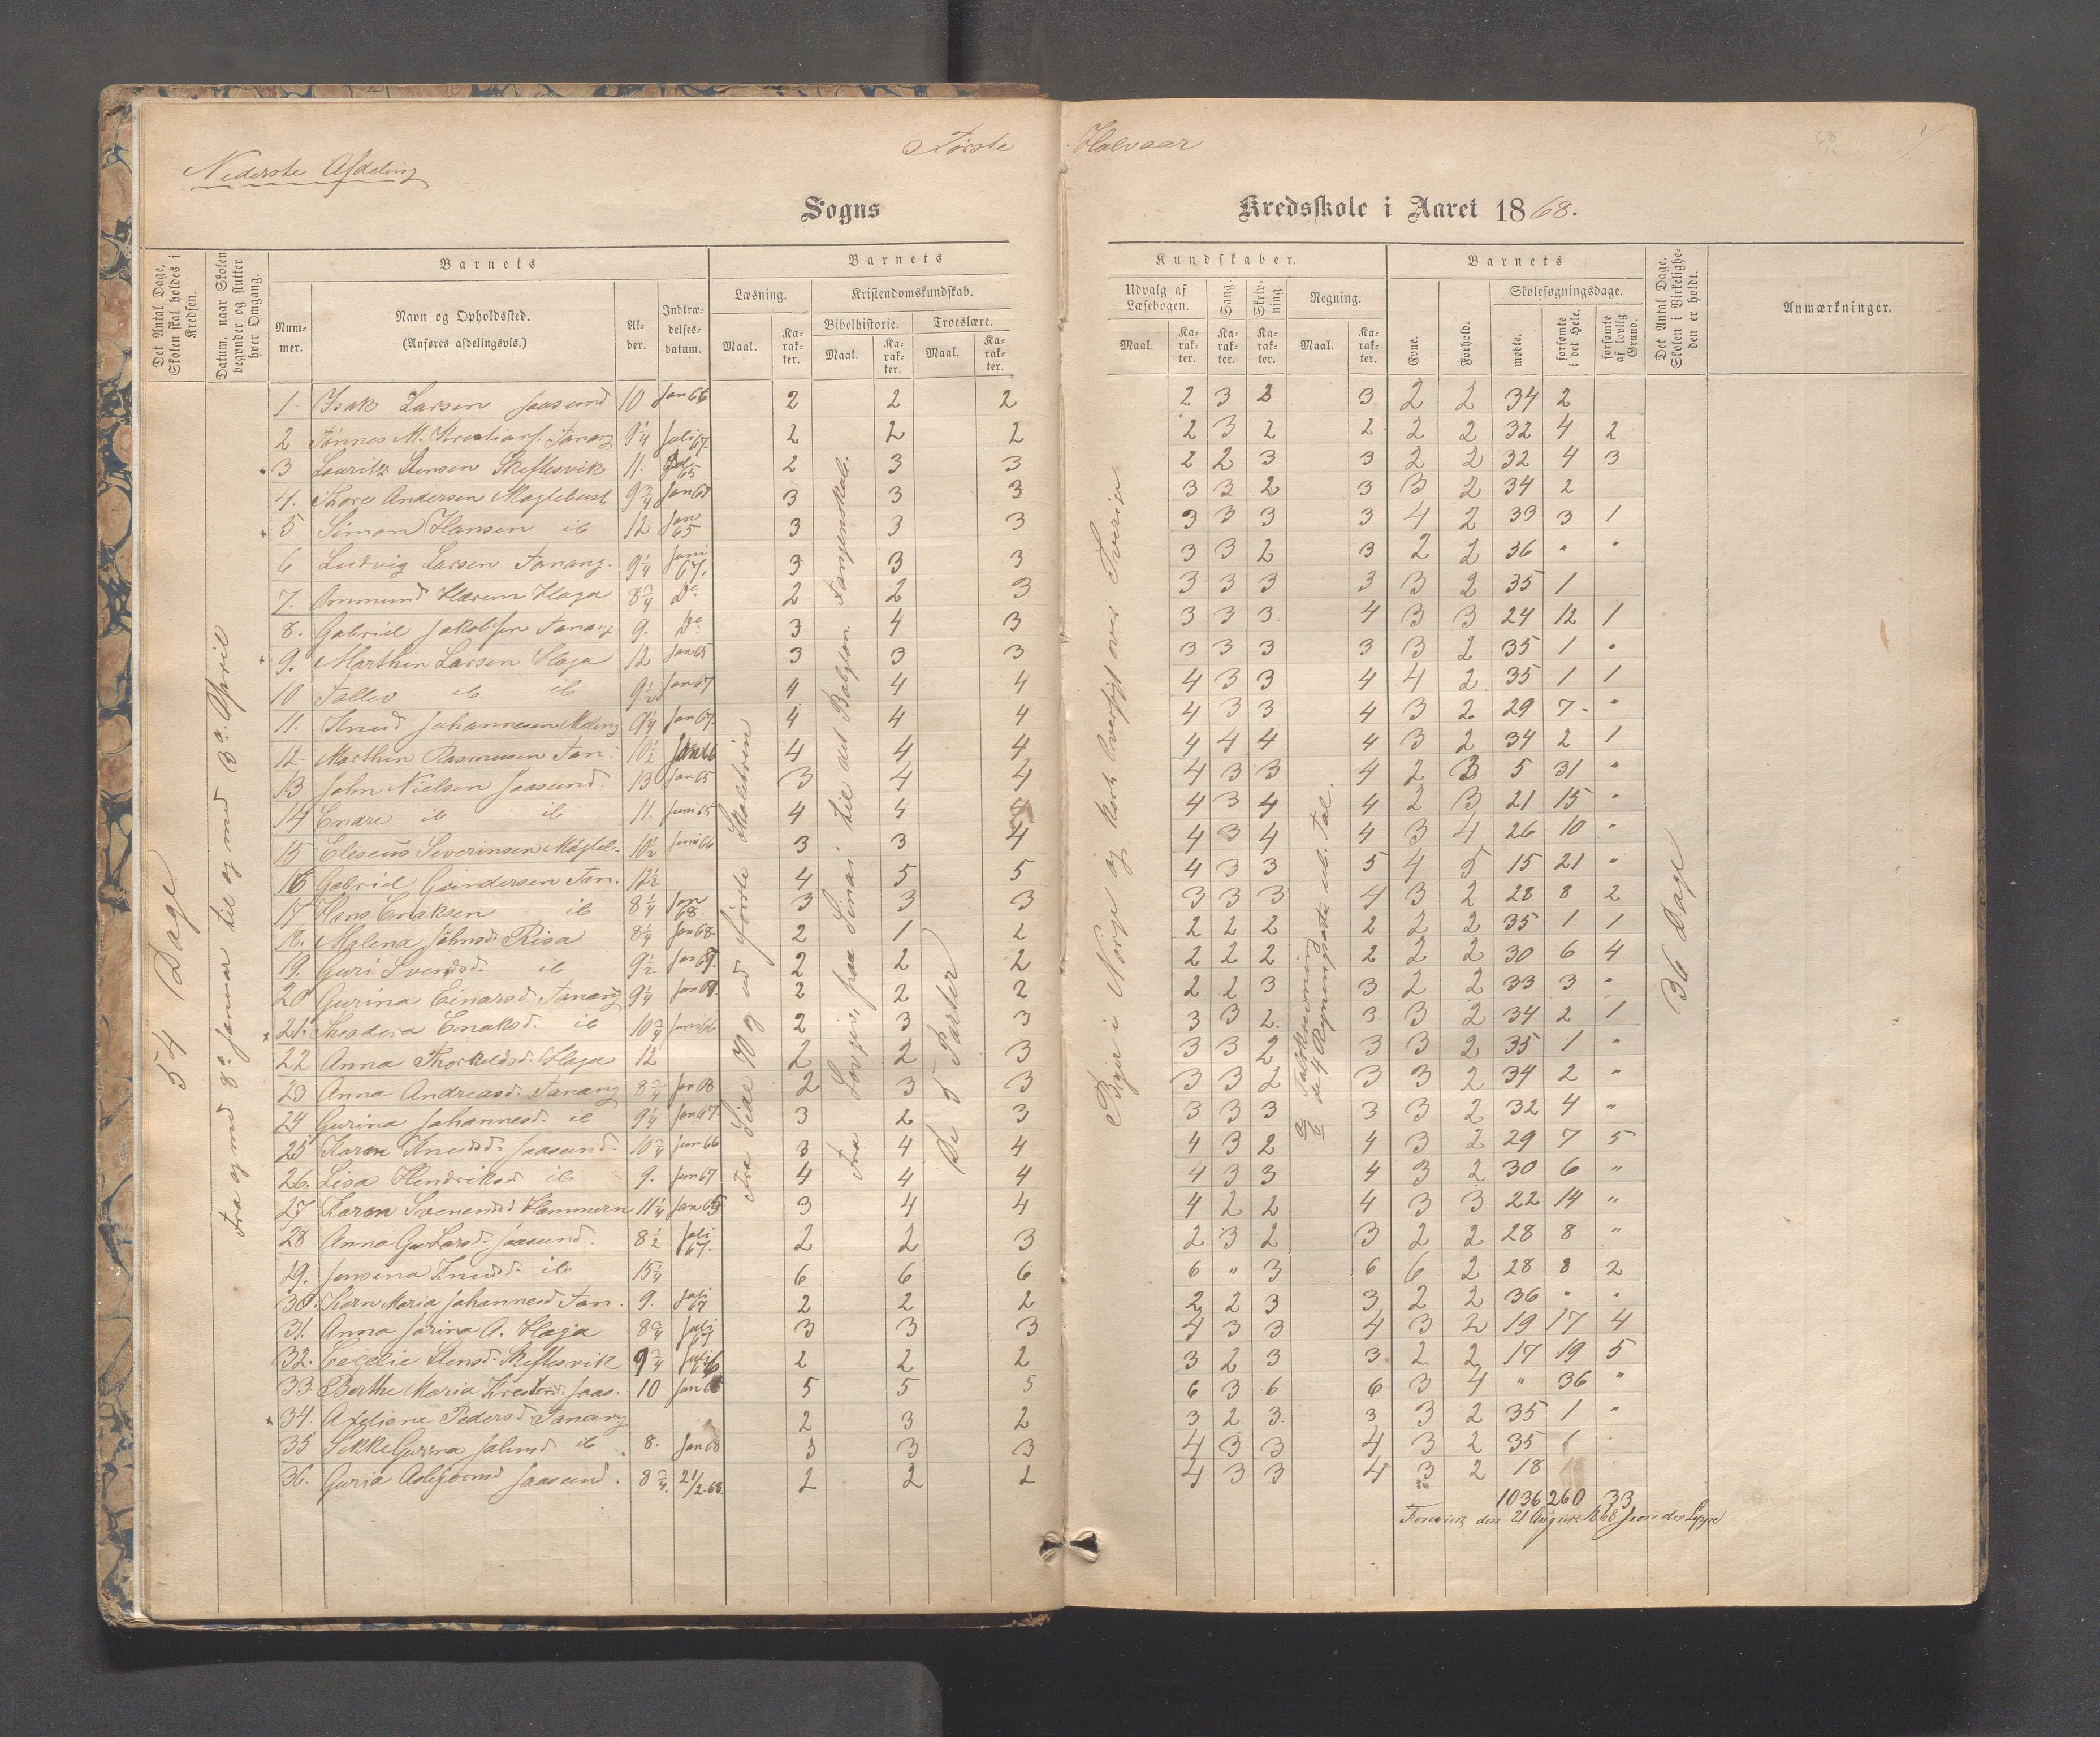 Første Halvaar
Nederste Afdeling
Sogns Kredsskole i Aaret 1868.
Det Antal Dage, Skolen skal holdes i Kredsen.
Datum, naar Skolen begynder og slutter hver Omgang.
Barnets
Num-mer.
Navn og Opholdssted.
(Anføres afdelingsvis.)
Al-der.
Indtræ-delses-datum.
Barnets
Læsning.
Kristendomskundskab.
Bibelhistorie.
Troeslære.
Maal.
Ka-rak-ter.
Maal.
Ka-rak-ter.
Maal.
Ka-rak-ter.
Kundskaber.
Udvalg af Læsebogen.
Sang.
Skriv-ning.
Regning.
Maal.
Ka-rak-ter.
Ka-rak-ter.
Ka-rak-ter.
Maal.
Ka-rak-ter.
Barnets
Evne.
Forhold.
Skolesøgningsdage.
mødte.
forsømte i det Hele.
forsømte af lovlig Grund.
Det Antal Dage, Skolen i Virkelighe-den er holdt.
Anmærkninger.
54 Dage
Fra og med 8de Januar til og med 3die April
Fra Side 70 og ud første Skoletrin
Fra Lovgiv. paa Sinai til det Babylon. Fangenskab.
De 5 Parter
Byer i Norge og kort Oversigt over Sverige
de 4 Regningsarter
36 Dage
1 Isak Larsen Jaasund 10 Jan 66 2 2 2 2 3 2 3 2 2 34 2
2 Tønnes M. Kristians. Tanang 9 1/4 Juli 67. 2 2 2 2 3 2 2 2 2 32 4 2
3 Lauritz Stensen Skeftesvik 11. 65 2 3 3 2 2 3 3 2 2 32 4 3
4. Thore Andersen Maglebust 9 3/4 Jan 67 3 3 3 3 3 2 3 3 2 34 2
5 Simon Hansen ib 12 Jan 65 3 3 3 3 3 3 3 4 2 33 3 1
6 Ludvig Larsen Tanang. 9 1/4 Juni 67. 3 3 3 3 3 2 3 2 2 36 " "
7. Ommund Haavn Haga 8 3/4 Do 2 2 3 3 3 3 3 3 2 35 1
8. Gabriel Jakobsen Tanang 9. Do 3 4 3 3 3 3 4 3 3 24 12 1
9. Marthin Larsen Haga 12 Jan 65 3 3 3 3 3 3 3 3 2 35 1 "
10 Tallev ib ib 9 1/2 Jan 67 4 4 4 4 3 3 4 4 2 35 1 1
11. Knud Johannesen Meling 9 1/4 Jan 67. 4 4 4 4 3 3 4 3 2 29 7 "
12 Marthin Rasmusen Tan. 10 1/2 Jan 66 4 4 4 4 4 4 4 3 2 34 2 1
13 John Nielsen Jaasund 13 Jan 65 3 4 4 4 3 3 4 2 3 5 31 "
14 Enare ib ib 11. Juni 65 4 4 4 4 3 4 4 2 3 21 15 "
15 Eleseus Severinsen Magleb. 10 1/2 Juni 66 3 3 4 4 3 4 4 3 4 26 10 "
16 Gabriel Gundersen Tan. 12 1/2 4 5 5 4 3 3 5 4 5 15 21 "
17 Hans Enaksen ib 8 1/4 Jan 68. 3 3 3 3 3 3 4 3 2 28 8 2
18. Malena Johnsd. Risa 8 1/4 Jan 68. 2 1 2 2 2 2 2 2 2 35 1 1
19. Guri Svendsd. ib 9 1/2 Jan 67. 2 2 2 2 2 2 2 2 2 30 6 4
20 Gurina Einarsd. Tanang 9 1/4 Jan 2 2 2 2 2 3 3 2 2 33 3 "
21. Theodora Enaksd. ib 10 3/4 Juni 66 2 3 3 3 3 2. 3 3 2 34 2 1
22 Anna Thorkeldsd. Haga 12 2 2 3 3 3 2 3 3 2 35 1 "
23 Anna Andreasd. Tanang 8 3/4 Jan 68 2 3 3 3 3 2 3 3 2 34 2 "
24 Gurina Johannesd. ib 9 1/4 Jan 67. 3 2 3 3 3 3 3 3 2 32 4 "
25 Karen Knudsd. Jaasund. 10 3/4 Jan 66 3 4 4 4 3 2 4 3 2 29 7 5
26. Lisa Hendriksd ib 9. Jan 67 4 4 4 4 3 3 4 3 2 30 6 "
27 Karen Svenensd Hammern 11 1/4 Jan 65 3 4 4 4 2 2 4 3 3 22 14 "
28 Anna G. Larsd. Jaasund. 8 1/2 Juli 67. 2 2 3 2 3 2 3 2 2 28 8 "
29. Jensena Knudsd. ib 15 1/4 6 6 6 6 " 3 6 6 2 28 8 2
30. Karn Maria Johannesd Tan. 9. Juli 67 2 2 2 2 2 3 3 2 2 36 " "
31. Anna Jorina A. Haga 8 3/4 Juli 67 3 3 3 4 3 3 4 3 2 19 17 4
32. Cecelie Stensd. Skeftesvik 9 3/4 Juli 66 2 2 2 3 2 3 3 2 2 17 19 5
33 Berthe Maria Jaas. 10 Jan 5 5 5 6 3 6 6 3 4 " 36 "
34. Pedersd. Tanang 2 3 2 3 2 3. 3 3 2 35 1 "
35 Sikke Gurina Johnsd. ib 8. Jan 68 3 3 3 4 3 3 4 3 2 35 1
36. Guria Asbjørnsd Jaasund. 8 3/4. 21/2.68. 2 2 2 4 3 3 4 3 2 18
1036 260 33
den 21 August 1868